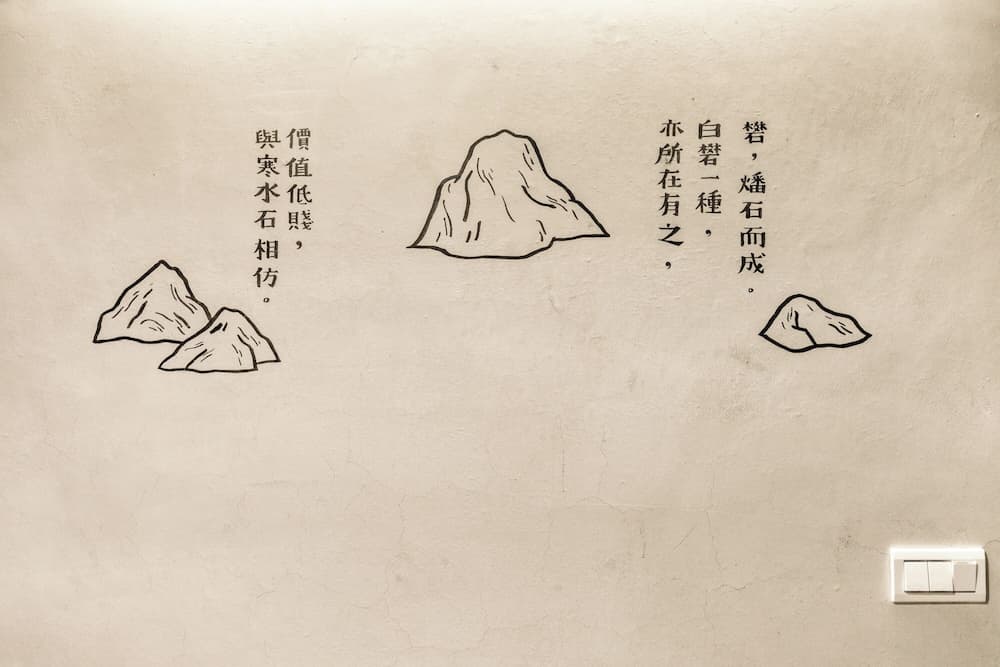 礬，燔石而成。
白礬一種，
亦所在有之，
價值低賤，
與寒水石相仿。